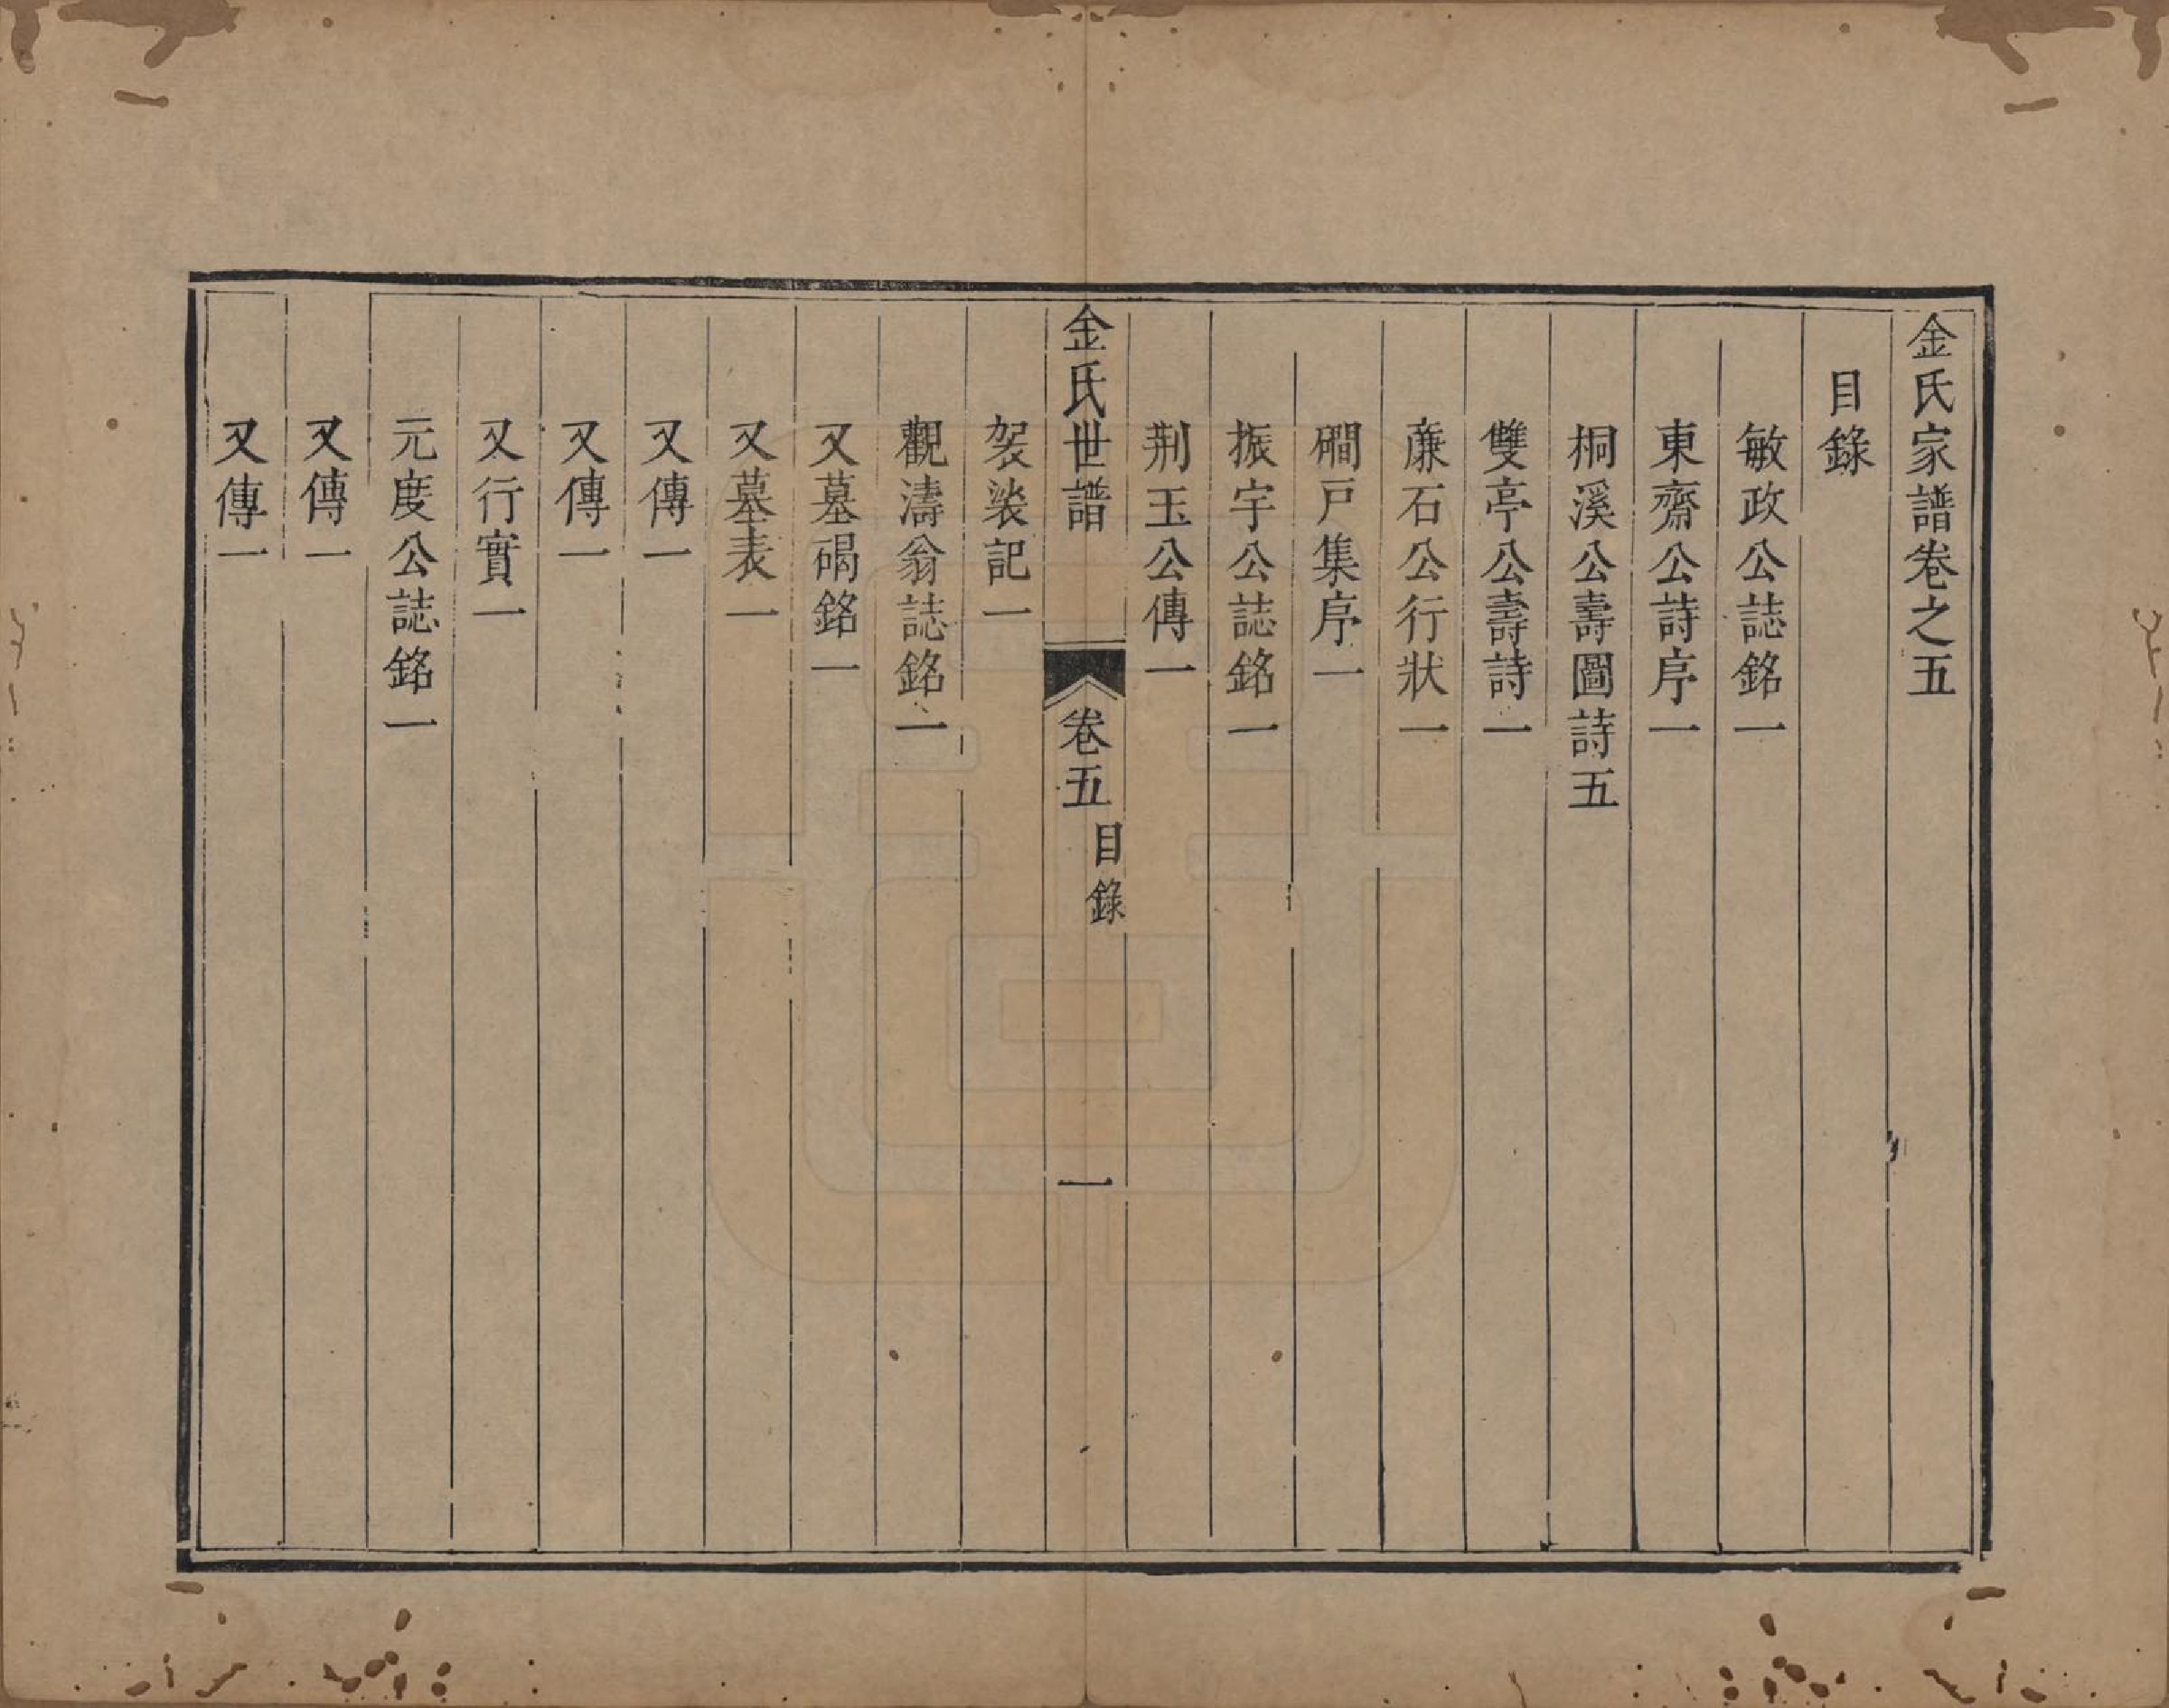 金氏家譜卷之五
目錄
敏政公誌銘一
東齋公詩序一
桐溪公壽圖詩五
雙亭公壽詩一
廉石公行狀一
磵戸集序一
振宇公誌銘一
荆玉公傳一
金氏世譜 卷五 目錄 一
袈裟記一
觀濤翁誌銘一
又墓碣銘一
又墓表一
又傳一
又傳一
又行實一
元度公誌銘一
又傳一
又傳一